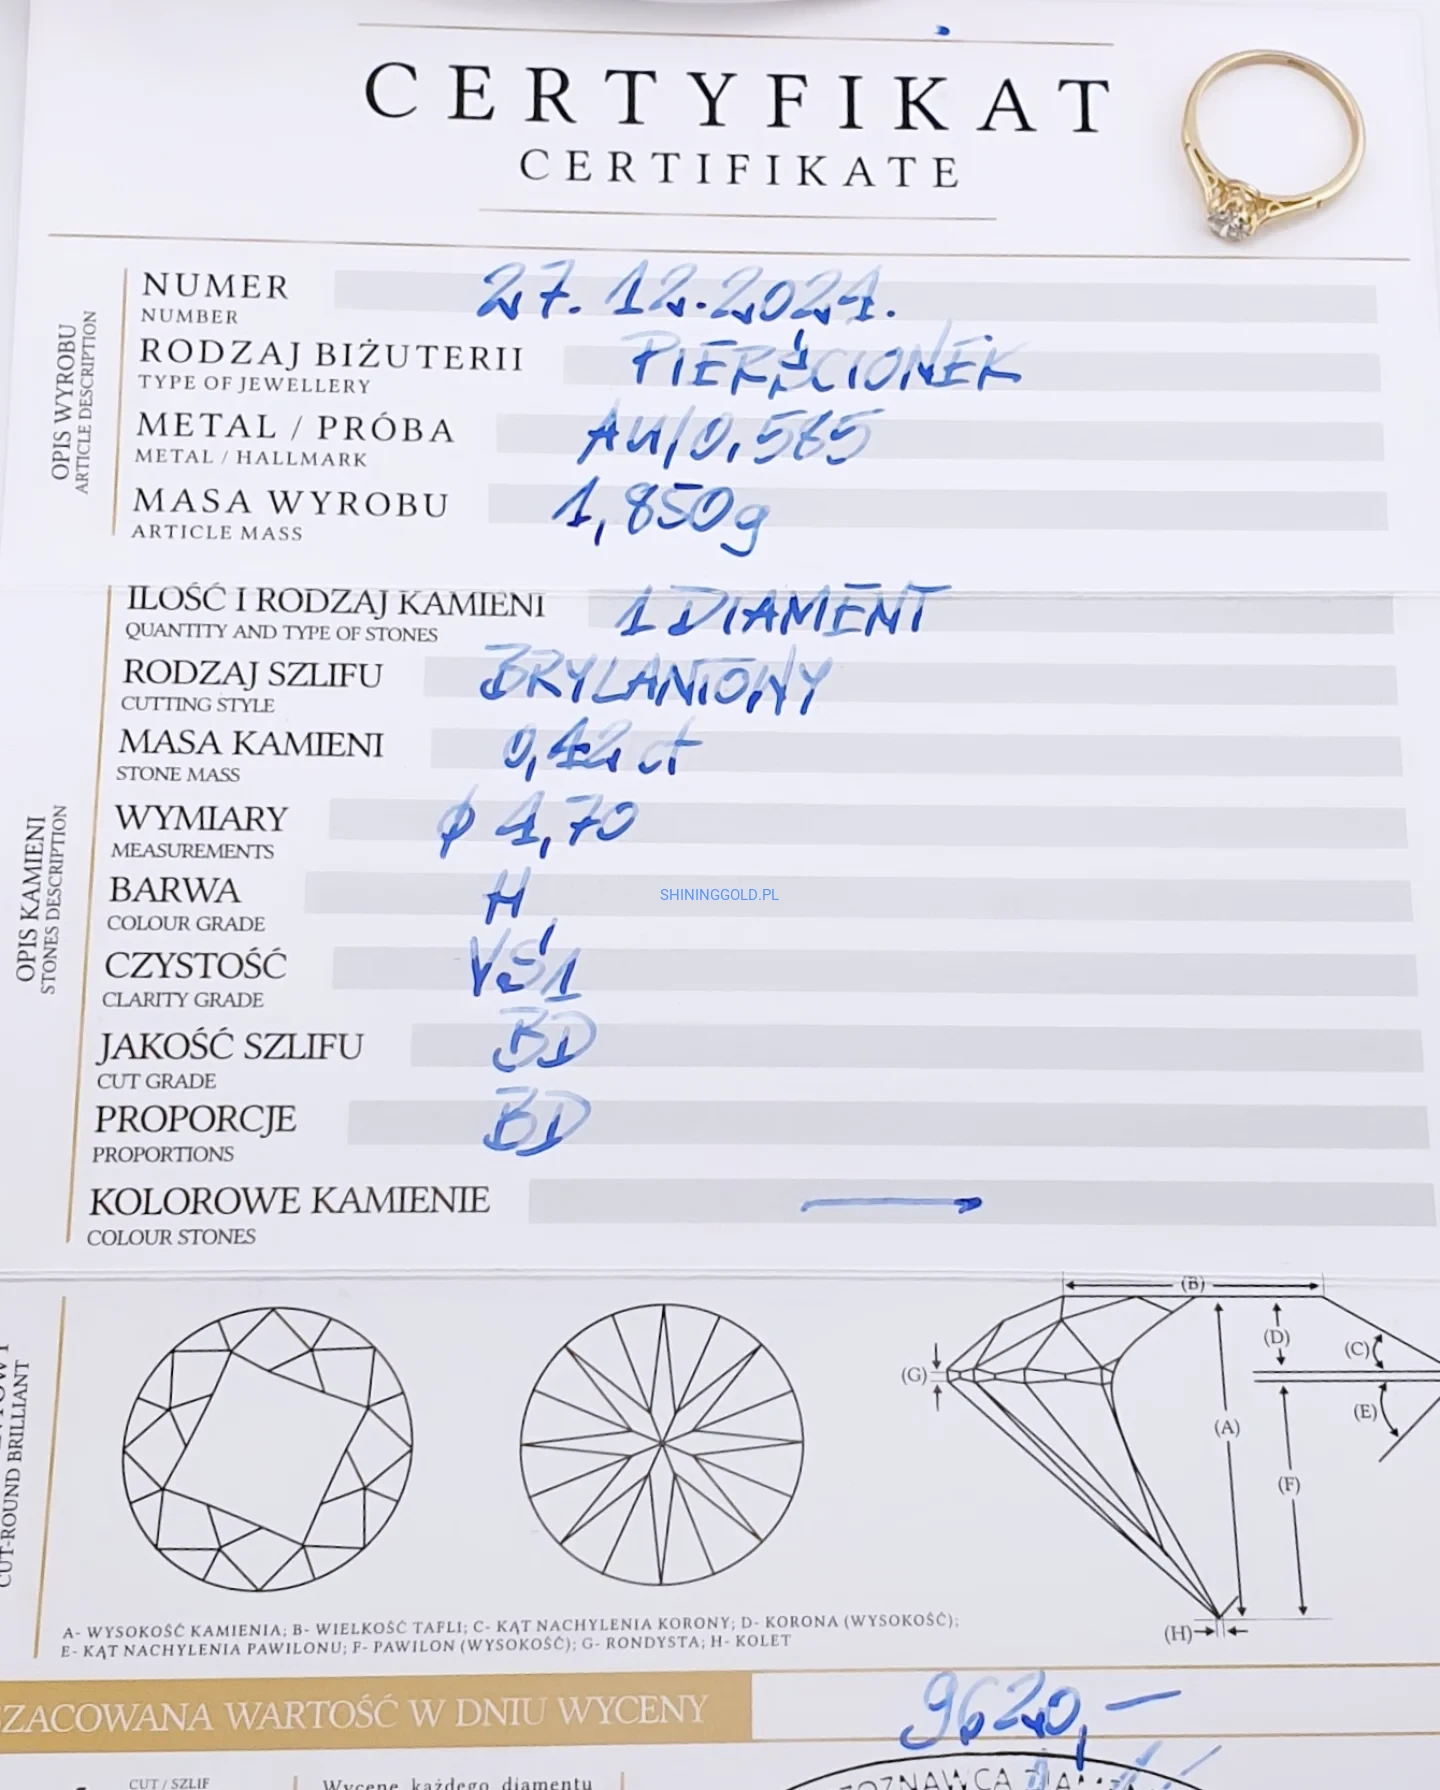 CERTYFIKAT
CERTIFIKATE
OPIS WYROBU
ARTICLE DESCRIPTION
NUMER 27.12.2024.
NUMBER
RODZAJ BIŻUTERII PIERŚCIONEK
TYPE OF JEWELLERY
METAL / PRÓBA Au/0,585
METAL / HALLMARK
MASA WYROBU 1,850g
ARTICLE MASS
OPIS KAMIENI
STONES DESCRIPTION
ILOŚĆ I RODZAJ KAMIENI 1 DIAMENT
QUANTITY AND TYPE OF STONES
RODZAJ SZLIFU BRYLANTOWY
CUTTING STYLE
MASA KAMIENI 0,42 ct
STONE MASS
WYMIARY ϕ 4,70
MEASUREMENTS
BARWA H
COLOUR GRADE
SHININGGOLD.PL
CZYSTOŚĆ VS1
CLARITY GRADE
JAKOŚĆ SZLIFU BD
CUT GRADE
PROPORCJE BD
PROPORTIONS
KOLOROWE KAMIENIE
COLOUR STONES
CUT-ROUND BRILLIANT
(B)
(D)
(C)
(G)
(E)
(A)
(F)
(H)
A- WYSOKOŚĆ KAMIENIA; B- WIELKOŚĆ TAFLI; C- KĄT NACHYLENIA KORONY; D- KORONA (WYSOKOŚĆ);
E- KĄT NACHYLENIA PAWILONU; F- PAWILON (WYSOKOŚĆ); G- RONDYSTA; H- KOLET
SZACOWANA WARTOŚĆ W DNIU WYCENY 9620,-
CUT / SZLIF
Wycenę każdego diamentu